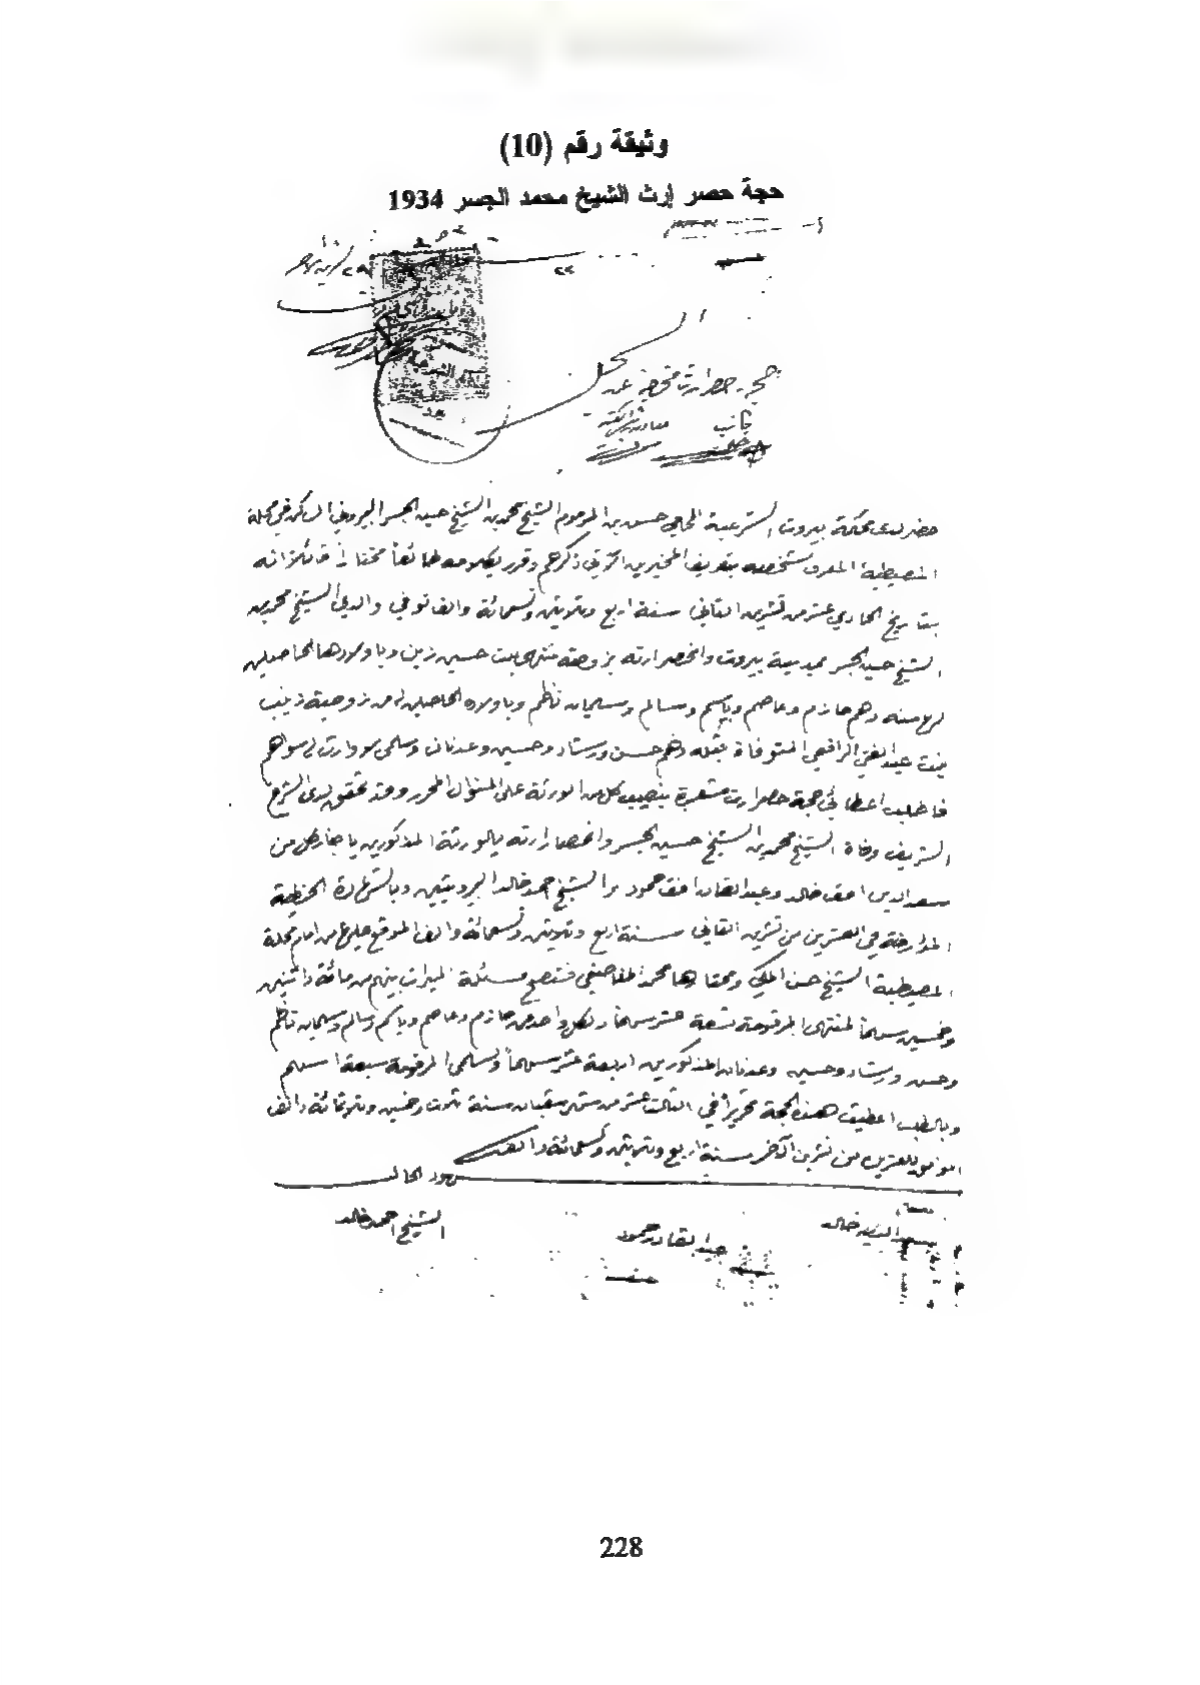 وثيقة رقم (10)
حجة حصر إرث الشيخ محمد الجسر 1934
حضر لدى محكمة بيروت الشرعية المحامي حسن بن المرحوم الشيخ محمد بن الشيخ حسين الجسر البيروتي الساكن في محلة
المصيطبة المعرف شخصه بتعريف المخبرين الآتي ذكرهم وقرر بكلامه طائعاً مختاراً قائلا انه
بتاريخ الحادي عشر من تشرين الثاني سنة اربع وثلاثين وتسعمائة والف توفي والدي الشيخ محمد بن
الشيخ حسين الجسر بمدينة بيروت وانحصر ارثه بزوجته منتهى بنت حسين زين وباولادها الحاصلين
لها منه وهم حازم وعاصم وباسم وسالم وسليمان ناظم وباولاده الحاصلين له من زوجته زينب
بنت عبد الغني الرافعي المتوفاة قبله وهم حسن ورشاد وحسين وعدنان وسلمى لا وارث له سواهم
فاطلب اعطائي حجة حصر ارث مشعرة بنصيب كل من الورثة على المنوال المحرر وقد تحقق لدى الشرع
الشريف وفاة الشيخ محمد بن الشيخ حسين الجسر وانحصار ارثه بالورثة المذكورين باخبار كل من
سعد الدين خالد وعبد القادر حمود والشيخ احمد خالد البيروتيين وبالشهادة الخطية
المؤرخة في العشرين من تشرين الثاني سنة اربع وثلاثين وتسعمائة والف الموقع عليها من امام محلة
المصيطبة الشيخ حسن المكي ومختارها محمد فتصح مسئلة الميراث بينهم من مائة واثنين
وخمسين سهماً لمنتهى المرقومة تسعة عشر سهماً ولكل واحد من حازم وعاصم وباسم وسالم وسليمان ناظم
وحسن ورشاد وحسين وعدنان المذكورين اربعة عشر سهماً ولسلمى المرقومة سبعة اسهم
وبالطلب اعطيت هذه الحجة تحريراً في الثالث عشر من شهر شعبان سنة ثلاث وخمسين وثلاثمائة والف
الموافق للعشرين من تشرين الآخر سنة اربع وثلاثين وتسعمائة والف
شهود الحال
خالد
عبد القادر حمود
الشيخ احمد خالد
228